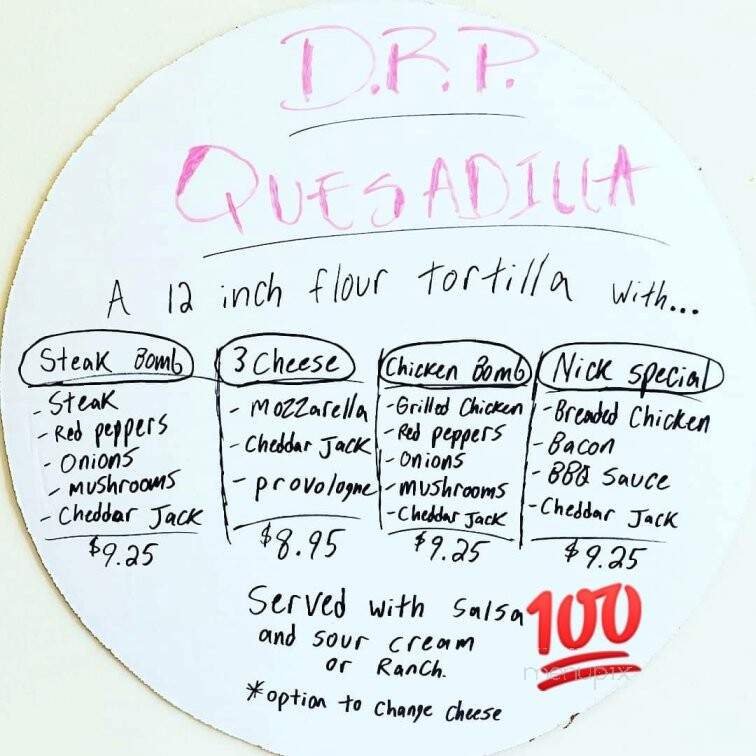 D.R.P.
QUESADILLA
A 12 inch flour tortilla with...
Steak Bomb
- Steak
- Red peppers
- Onions
- mushrooms
- Cheddar Jack
$9.25
3 Cheese
- Mozzarella
- Cheddar Jack
- provologne
$8.95
Chicken Bomb
- Grilled Chicken
- Red peppers
- Onions
- mushrooms
- Cheddar Jack
$9.25
Nick Special
- Breaded Chicken
- Bacon
- BBQ Sauce
- Cheddar Jack
$9.25
Served with Salsa
and sour cream
or Ranch.
*option to Change Cheese
100
menupix